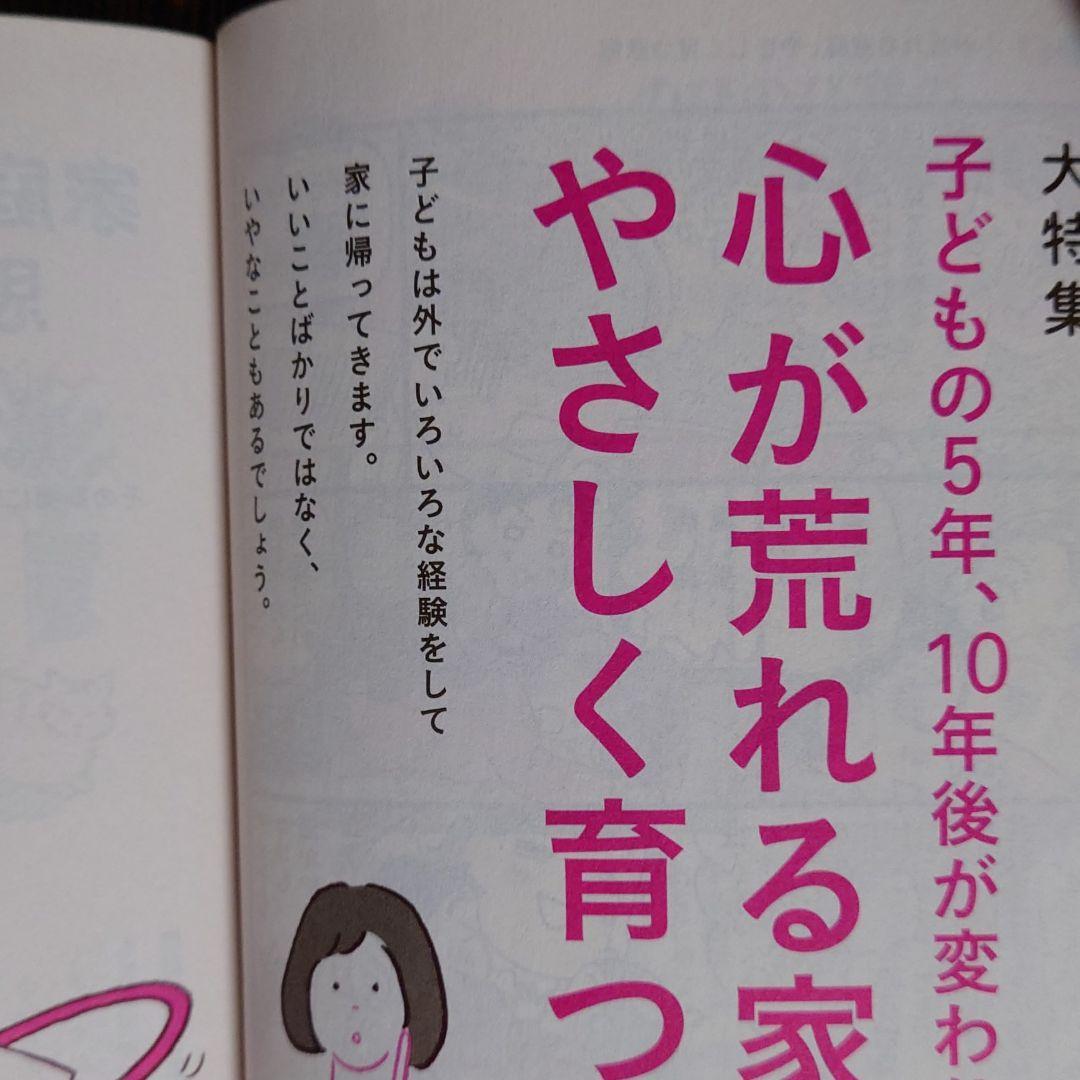 大特集
子どもの5年、10年後が変わ
心が荒れる家
やさしく育つ
子どもは外でいろいろな経験をして
家に帰ってきます。
いいことばかりではなく、
いやなこともあるでしょう。